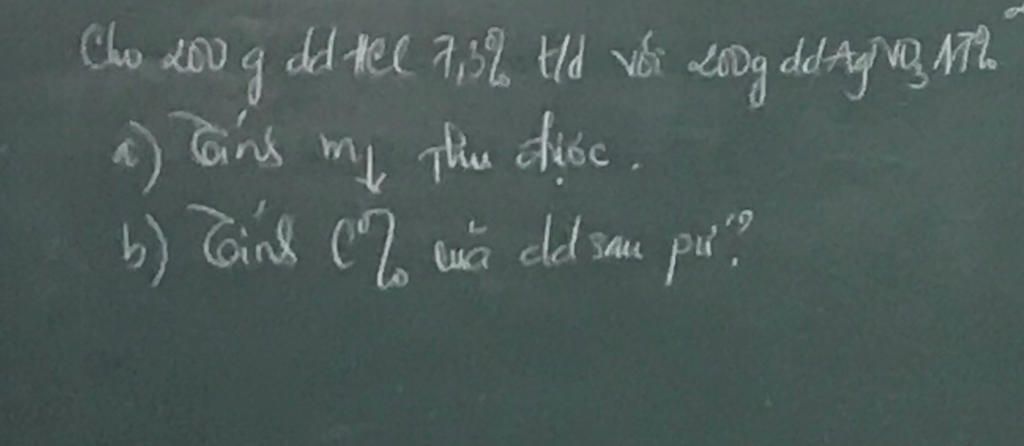 Cho 200 g dd HCl 7,3% t/d với 200g dd AgNO3 17%
a) Tính m↓ thu được.
b) Tính C% của dd sau pư?